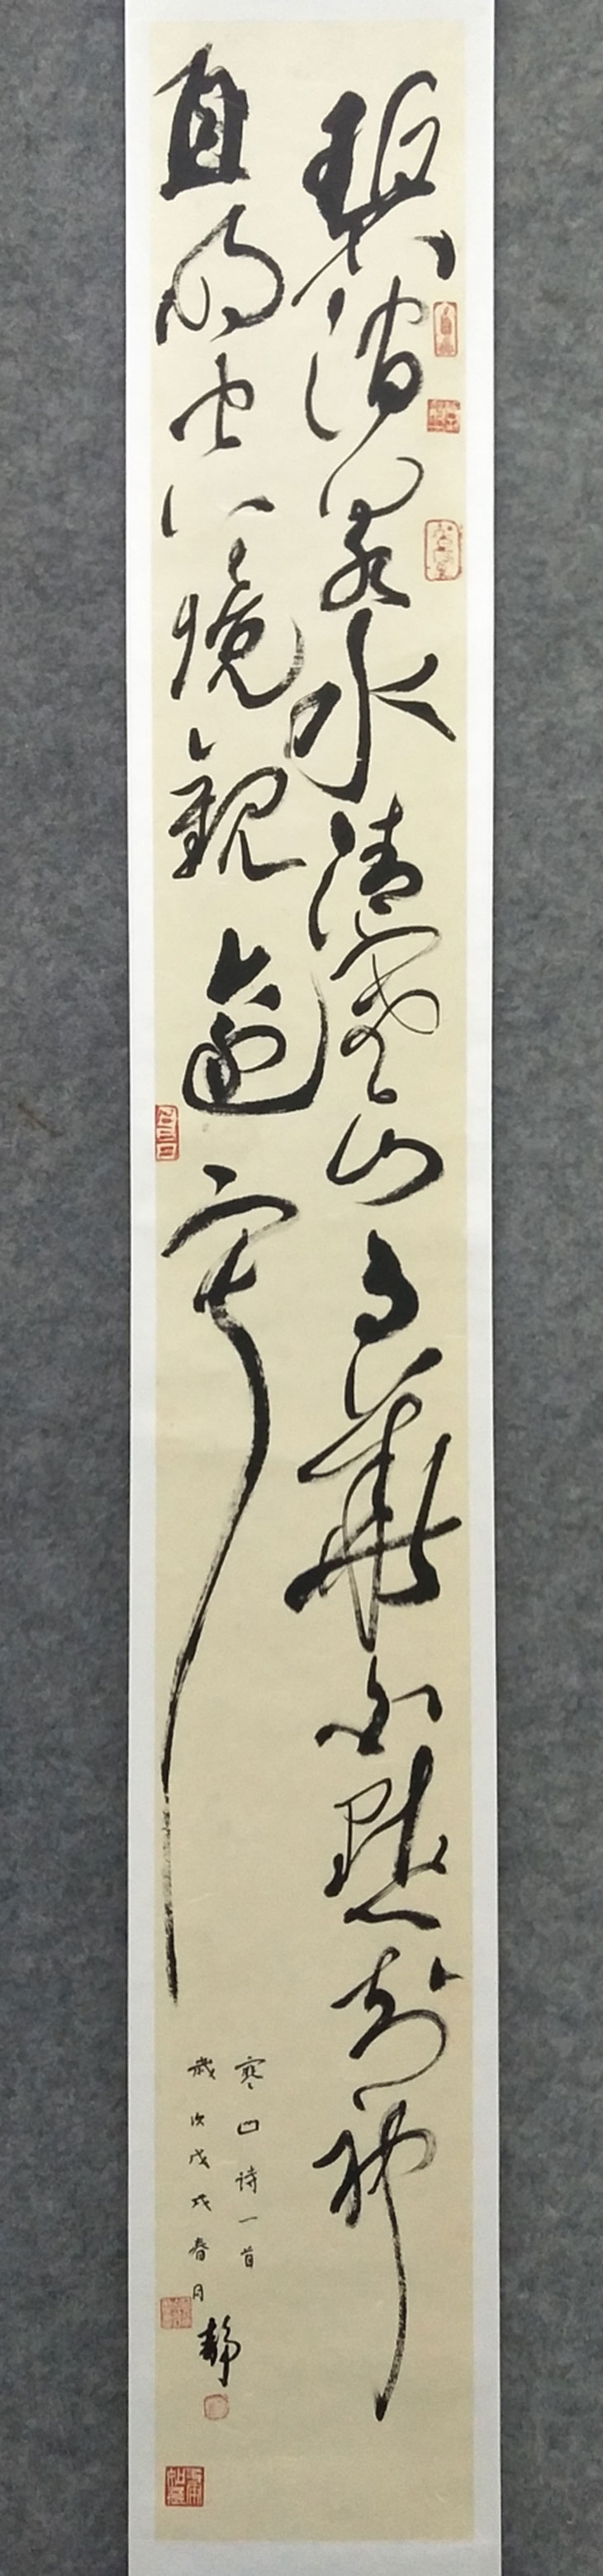 碧澗泉水清寒山月華白默知神
自明空境觀逾寂
寒山诗一首
歲次戊戌春月
静